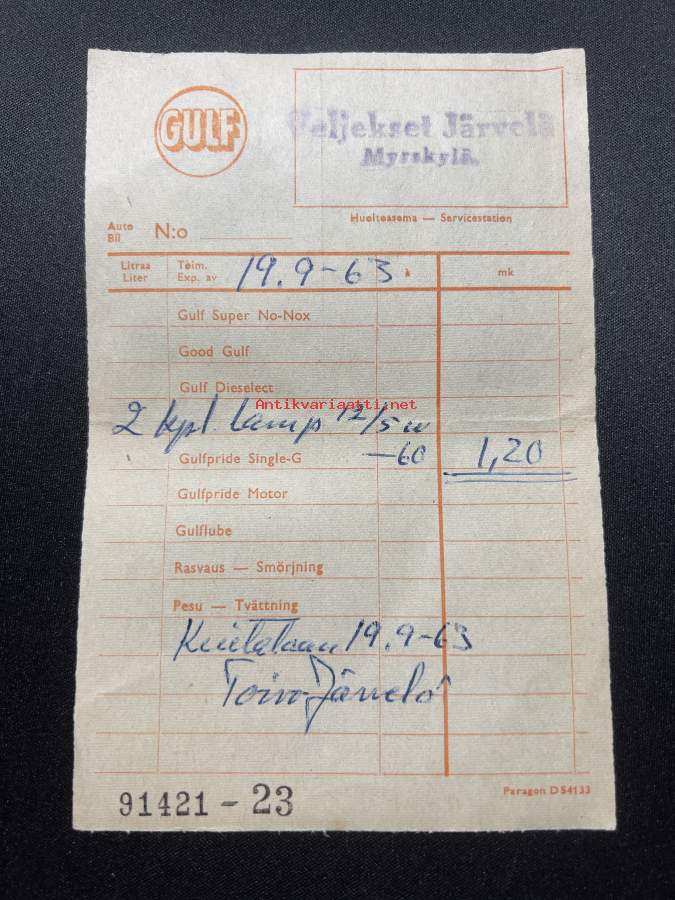 GULF
Veljekset Järvelä
Myrskylä.
Huoltoasema — Servicestation
Auto
Bil N:o
Litraa
Liter
Toim.
Exp. av 19.9-63 mk
Gulf Super No-Nox
Good Gulf
Gulf Dieselect
Antikvariaatti.net
2 kpl. lamp 12/5 w
Gulfpride Single-G —60 1,20
Gulfpride Motor
Gulflube
Rasvaus — Smörjning
Pesu — Tvättning
Kuitataan 19.9-63
Toivo Järvelä
91421 - 23
Paragon D 54133